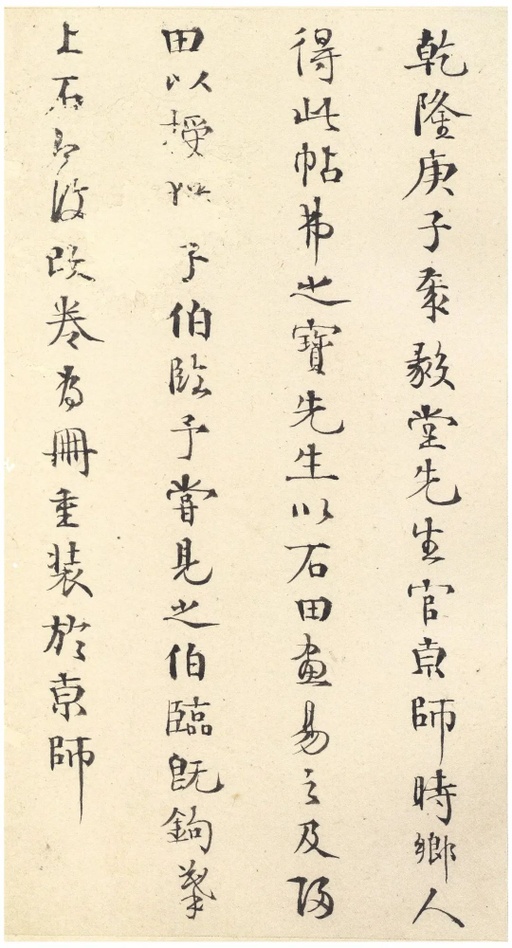 乾隆庚子乘毅堂先生官京師時鄉人
得此帖弗之寶先生以石田畫易之及歸
田以授 予伯臨予嘗見之伯臨既鉤摹
上石即復改卷為冊重裝於京師